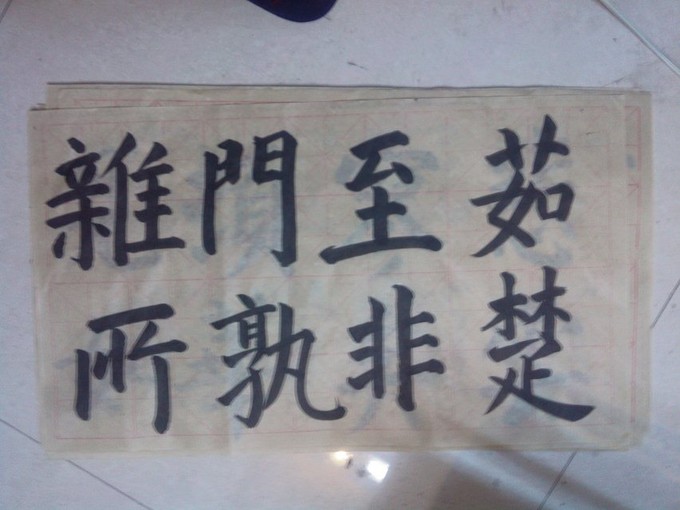 茹楚
至非
門孰
雜所